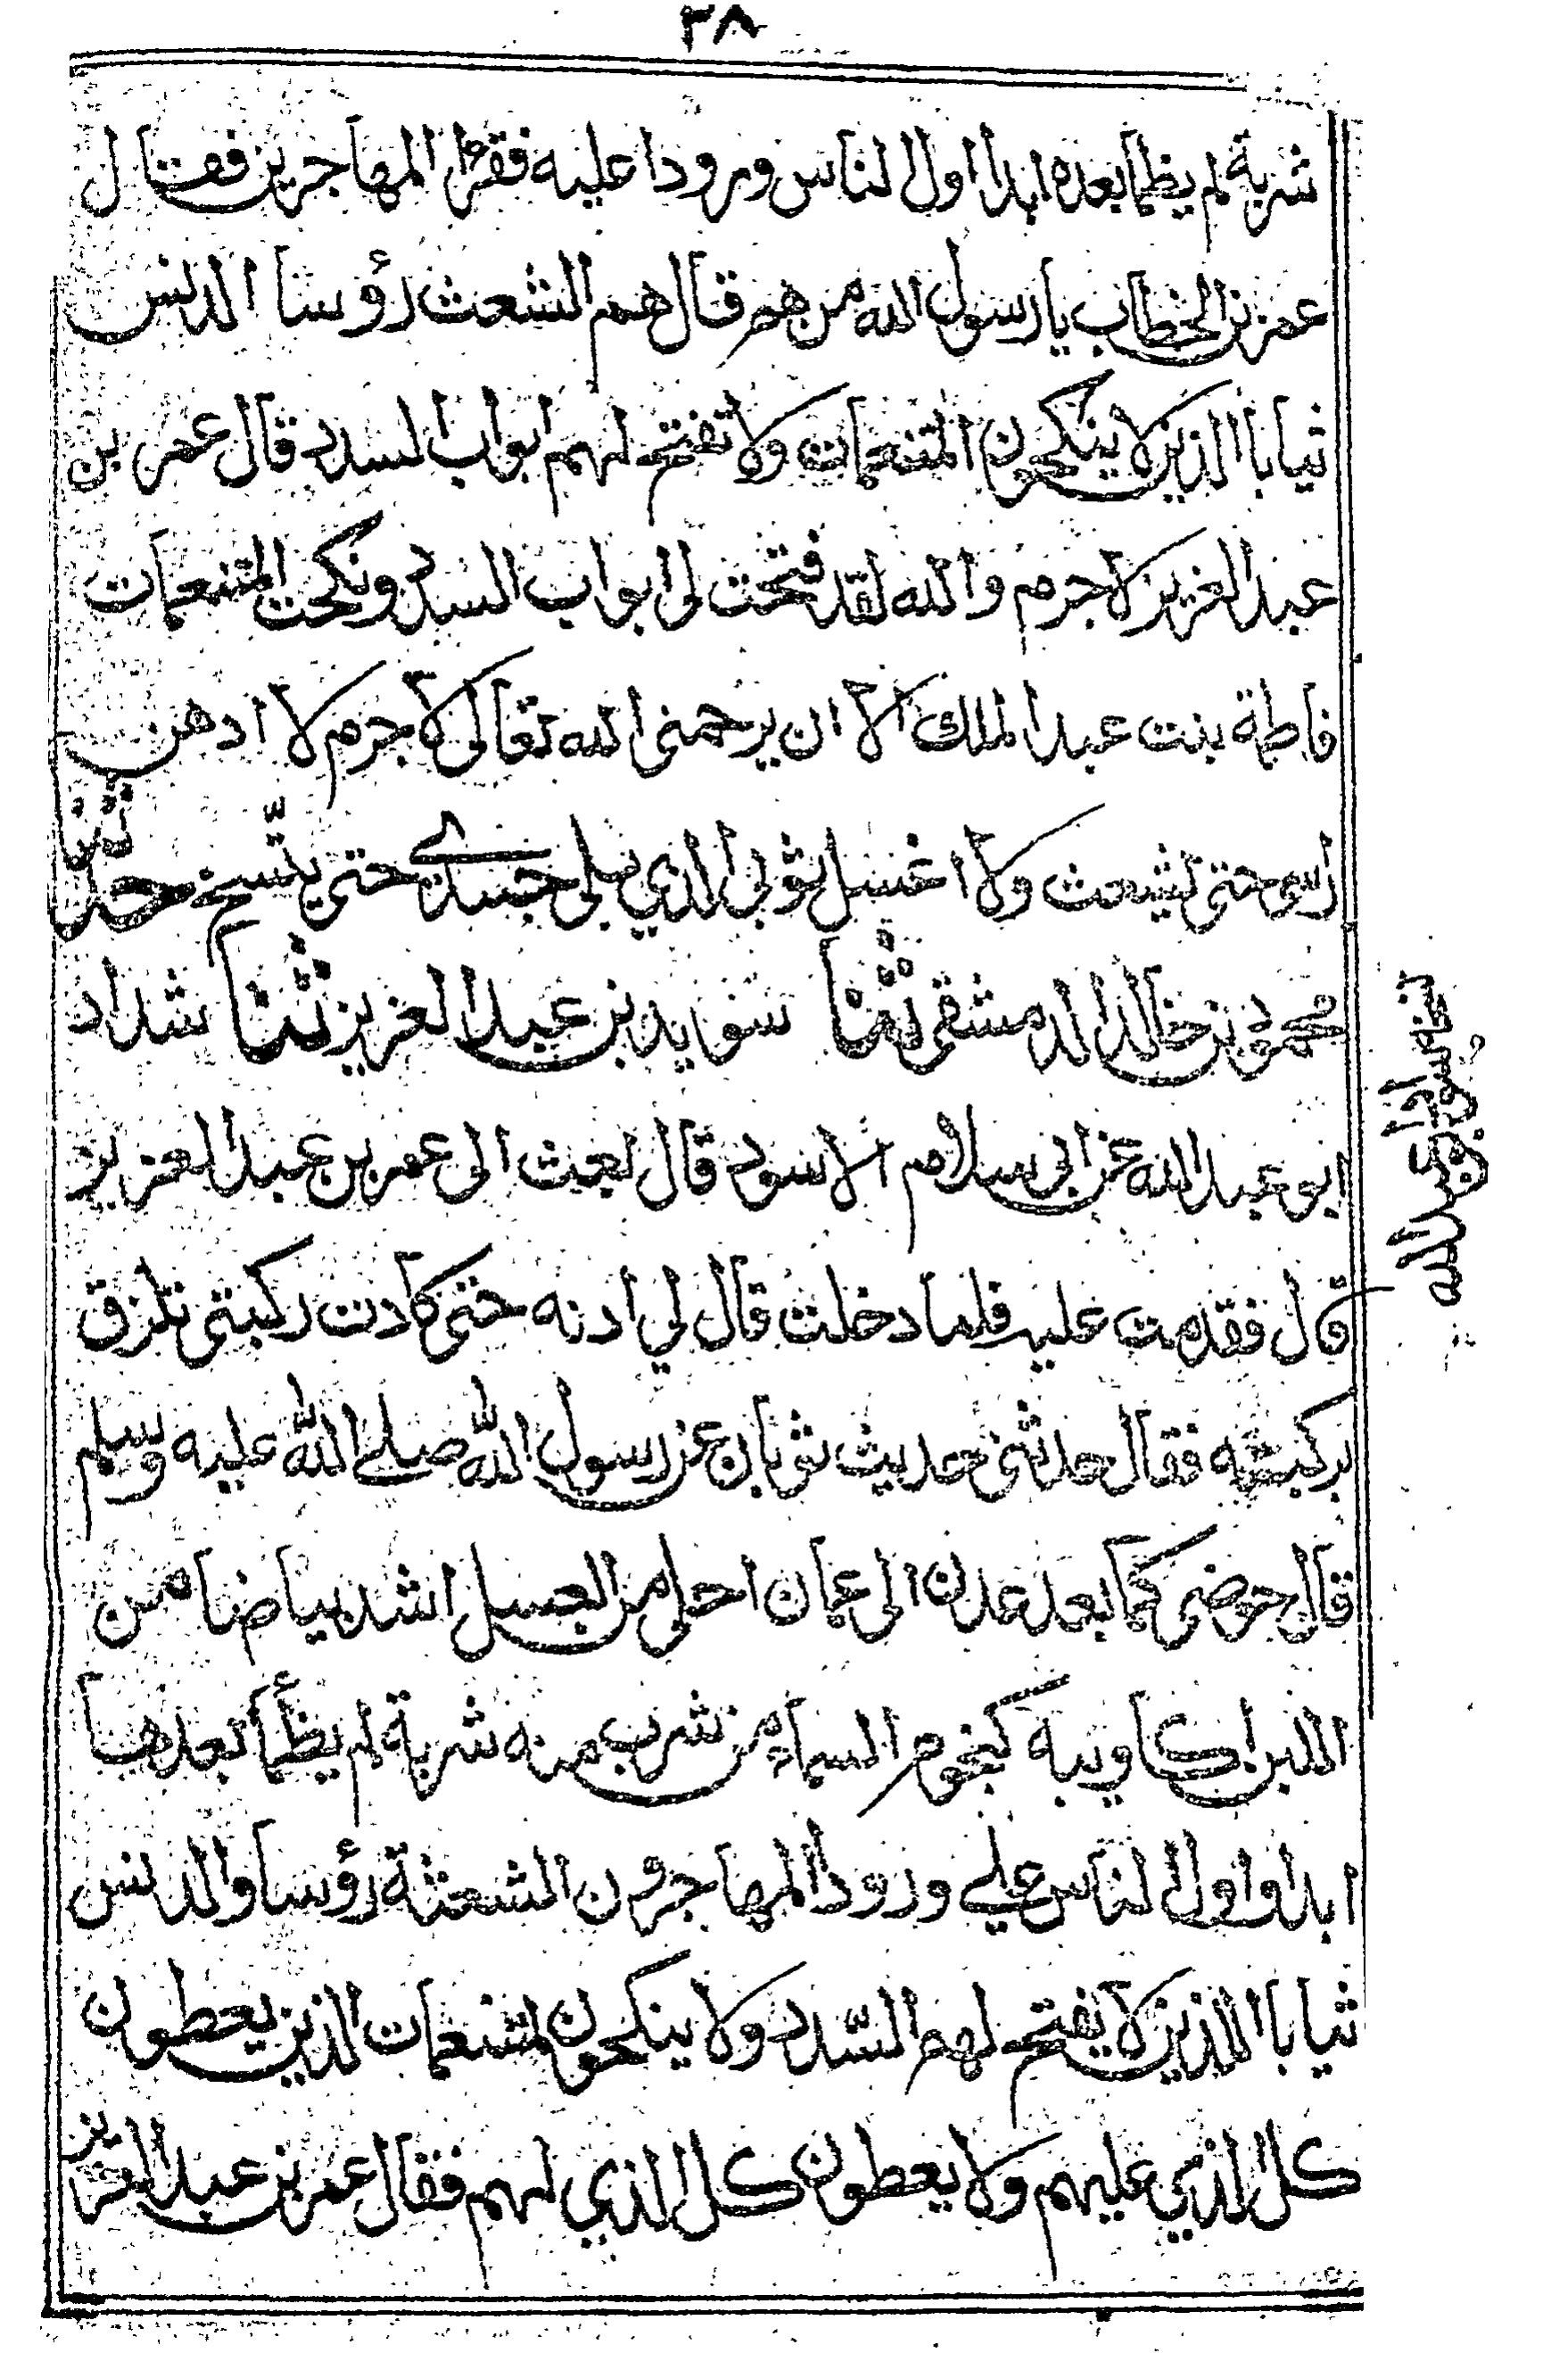 ٣٨
شربة لم يظمأ بعده ابدا اول الناس ورودا عليه فقراء المهاجرين فقال
عمر بن الخطاب يا رسول الله من هم قال هم الشعث رؤسا الدنس
ثيابا الذين لا ينكحون المتنعمات ولا تفتح لهم ابواب السدد قال عمر بن
عبد العزيز لا جرم والله لقد فتحت لي ابواب السدد ونكحت المتنعمات
فاطمة بنت عبد الملك الا ان يرحمني الله تعالى لا جرم لا ادهن
راسي حتى يشعث ولا اغسل ثوبي الذي يلي جسدي حتى يتسخ حدثنا
محمود بن خالد الدمشقي ثنا سويد بن عبد العزيز ثنا شداد
ابو عبد الله عن ابي سلام الاسود قال بعث الى عمر بن عبد العزيز
قال فقدمت عليه فلما دخلت قال لي ادنه حتى كادت ركبتي تلزق
بركبته فقال حدثني حديث ثوبان عن رسول الله صلى الله عليه وسلم
قال حوضي كما بعد عدن الى عمان احلى من العسل اشد بياضا من
اللبن اكاويبه كنجوم السماء من شرب منه شربة لم يظمأ بعدها
ابدا واول الناس علي ورودا المهاجرون الشعثة رؤسا والدنس
ثيابا الذين لا يفتح لهم السدد ولا ينكحون المتنعمات الذين يعطون
كل الذي عليهم ولا يعطون كل الذي لهم فقال عمر بن عبد العزيز